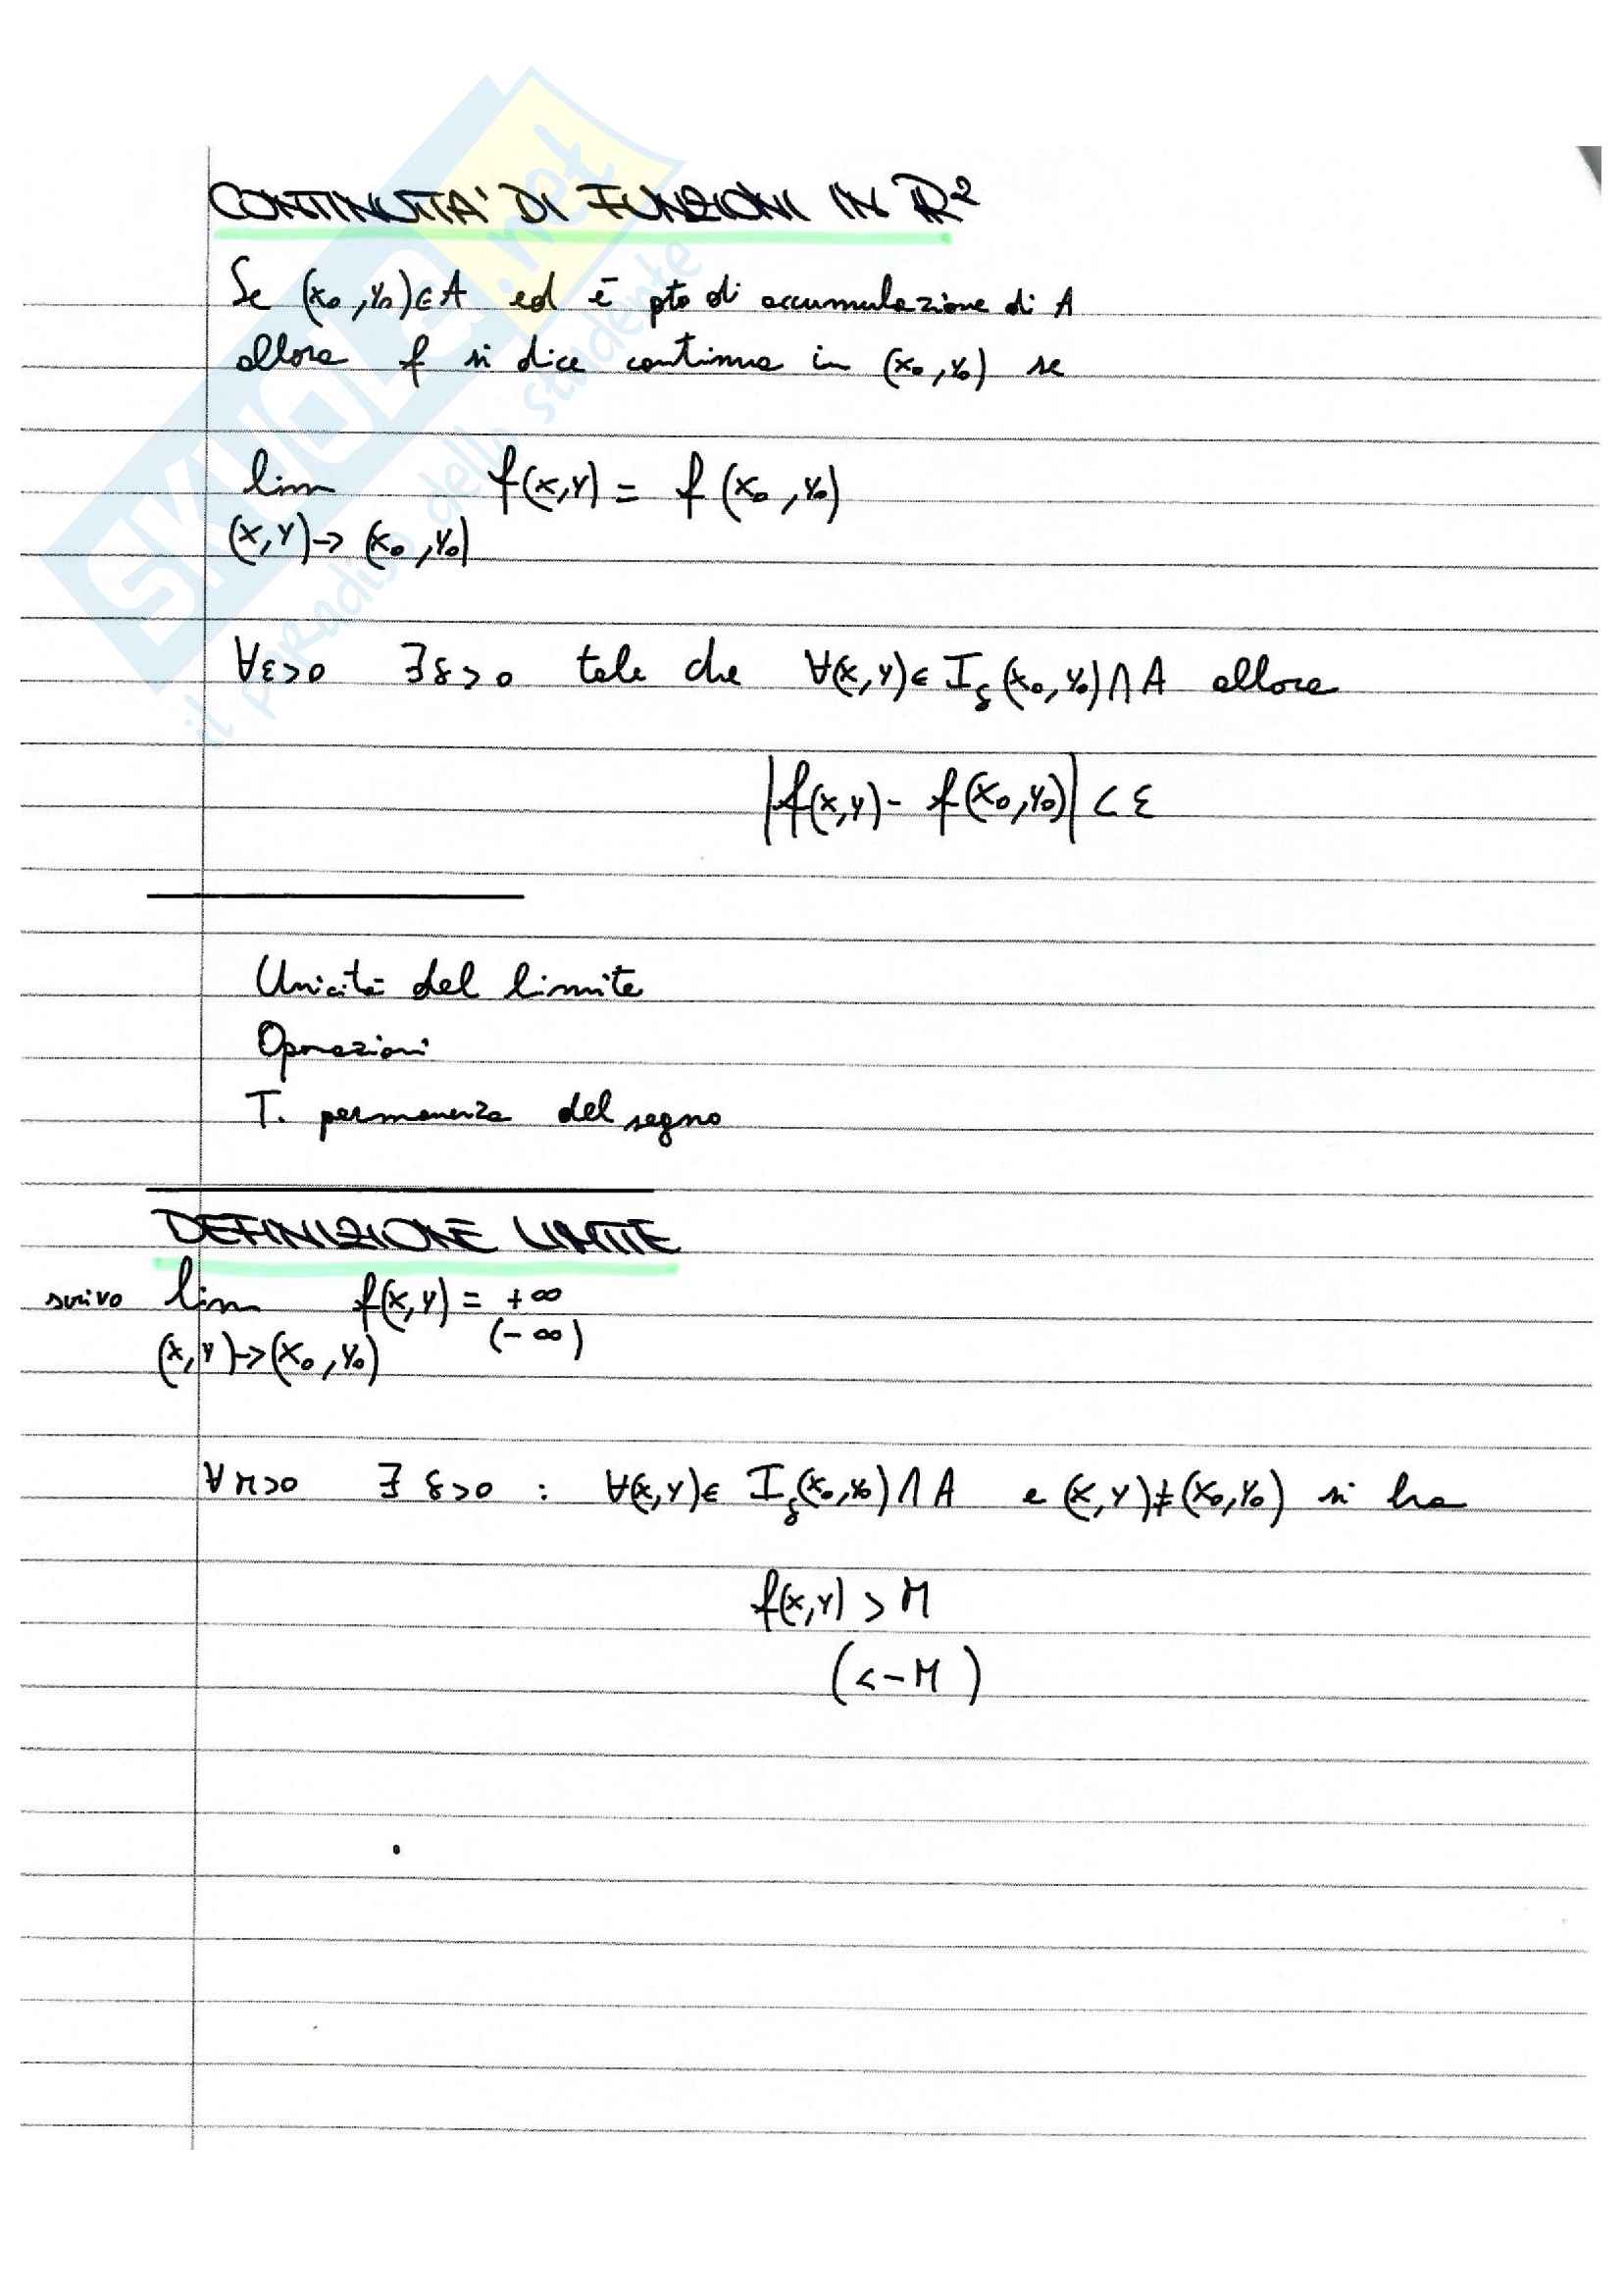 CONTINUITA' DI FUNZIONI IN ℝ²
Se (x₀,y₀)∈A ed è pto di accumulazione di A
allora f si dice continua in (x₀,y₀) se
lim f(x,y) = f(x₀,y₀)
(x,y)→(x₀,y₀)
∀ε>0 ∃δ>0 tale che ∀(x,y)∈ I_δ(x₀,y₀)∩A allora
|f(x,y) - f(x₀,y₀)| < ε
Unicità del limite
Operazioni
T. permanenza del segno
DEFINIZIONE LIMITE
scrivo lim f(x,y) = +∞
(-∞)
(x,y)→(x₀,y₀)
∀M>0 ∃δ>0 : ∀(x,y)∈ I_δ(x₀,y₀)∩A e (x,y)≠(x₀,y₀) si ha
f(x,y) > M
(<-M)
SKUOLA.net
il paradiso dello studente